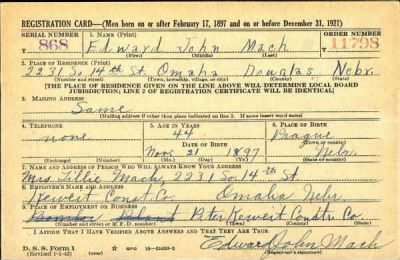 REGISTRATION CARD—(Men born on or after February 17, 1897 and on or before December 31, 1921)
SERIAL NUMBER 1. NAME (Print) ORDER NUMBER
868 Edward John Mach 11798
(First) (Middle) (Last)
2. PLACE OF RESIDENCE (Print)
2231 So. 14th St Omaha Douglas Nebr.
(Number and street) (Town, township, village, or city) (County) (State)
[THE PLACE OF RESIDENCE GIVEN ON THE LINE ABOVE WILL DETERMINE LOCAL BOARD
JURISDICTION; LINE 2 OF REGISTRATION CERTIFICATE WILL BE IDENTICAL]
3. MAILING ADDRESS
Same
[Mailing address if other than place indicated on line 2. If same insert word same]
4. TELEPHONE 5. AGE IN YEARS 6. PLACE OF BIRTH
none 44 Prague
DATE OF BIRTH (Town or county)
Nov. 21 1897 Nebr.
(Exchange) (Number) (Mo.) (Day) (Yr.) (State or country)
7. NAME AND ADDRESS OF PERSON WHO WILL ALWAYS KNOW YOUR ADDRESS
Mrs. Tillie Mach, 2231 So. 14th St
8. EMPLOYER'S NAME AND ADDRESS
Keweit Const Co. Omaha Nebr.
9. PLACE OF EMPLOYMENT OR BUSINESS
Island Peter Keweit Constru. Co.
(Number and street or R. F. D. number) (Town) (County) (State)
I AFFIRM THAT I HAVE VERIFIED ABOVE ANSWERS AND THAT THEY ARE TRUE.
D. S. S. Form 1
(Revised 1-1-42) (over) Edward John Mach